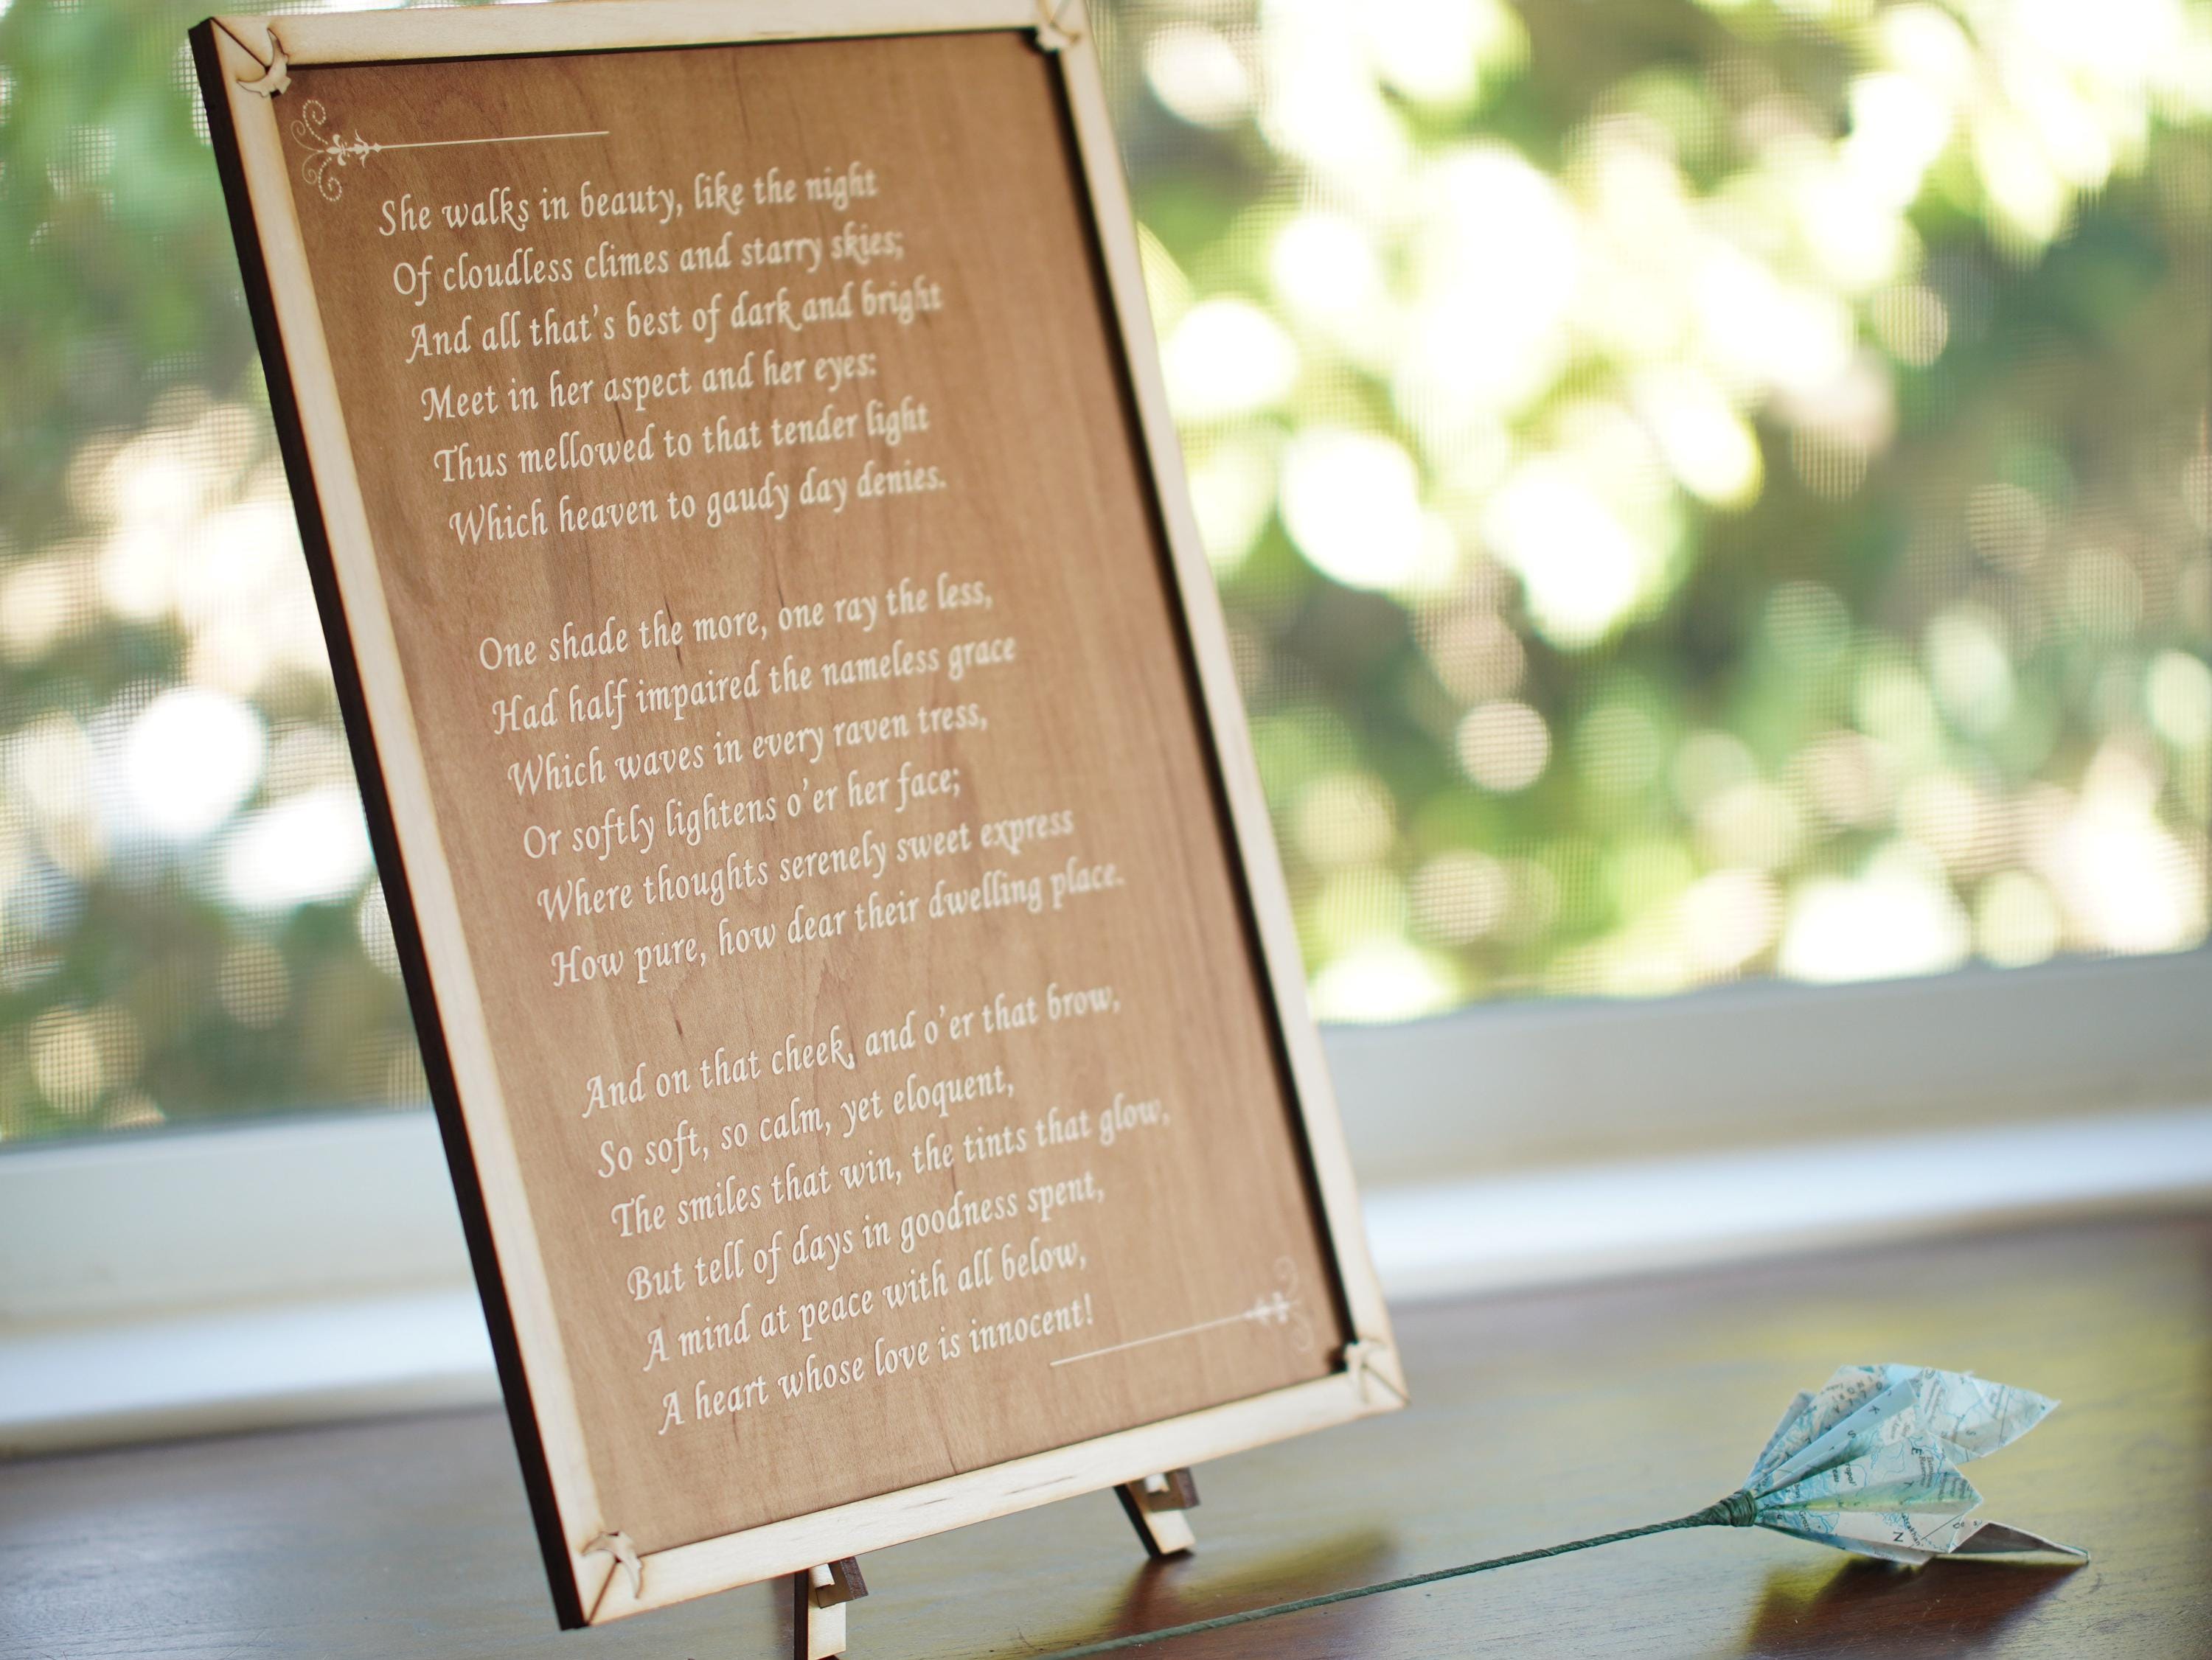 She walks in beauty, like the night
Of cloudless climes and starry skies;
And all that's best of dark and bright
Meet in her aspect and her eyes:
Thus mellowed to that tender light
Which heaven to gaudy day denies.
One shade the more, one ray the less,
Had half impaired the nameless grace
Which waves in every raven tress,
Or softly lightens o'er her face;
Where thoughts serenely sweet express
How pure, how dear their dwelling place.
And on that cheek, and o'er that brow,
So soft, so calm, yet eloquent,
The smiles that win, the tints that glow,
But tell of days in goodness spent,
A mind at peace with all below,
A heart whose love is innocent!